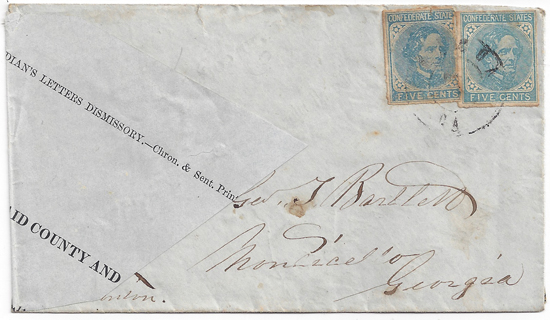 CONFEDERATE STATES
FIVE CENTS
CONFEDERATE STATES
FIVE CENTS
GA
DIAN'S LETTERS DISMISSORY.—Chron. & Sent. Print
AID COUNTY AND
Geo. T Bartlett
Monticello
Georgia